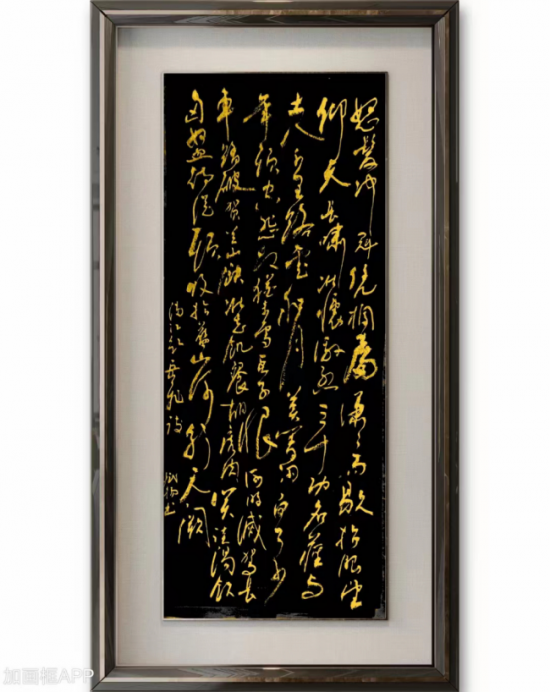 怒髮冲冠凭栏處潇潇雨歇抬眼望
仰天长啸壮怀激烈三十功名尘与
土八千里路云和月莫等闲白了少
年头空悲切犹未雪臣子恨何时灭驾长
车踏破贺兰山缺壮志饥餐胡虏肉笑谈渴饮
匈奴血待从头收拾旧山河朝天阙
满江红岳飞词
书
加画框APP